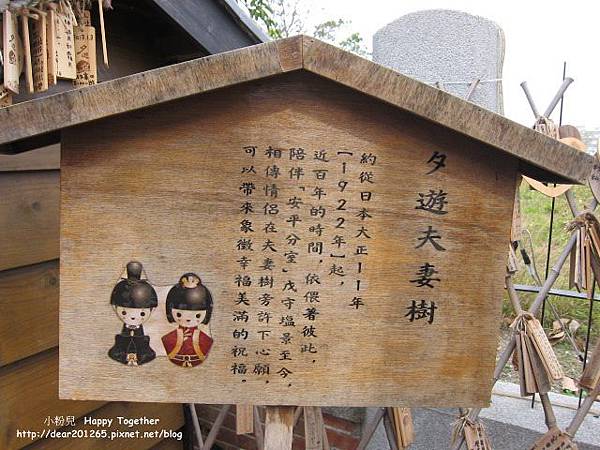 夕遊夫妻樹
約從日本大正11年
【1922年】起，
近百年的時間，依偎著彼此，
陪伴「安平分室」戍守塩景至今，
相傳情侶在夫妻樹旁許下心願，
可以帶來象徵幸福美滿的祝福。
小粉兒 Happy Together
http://dear201265.pixnet.net/blog